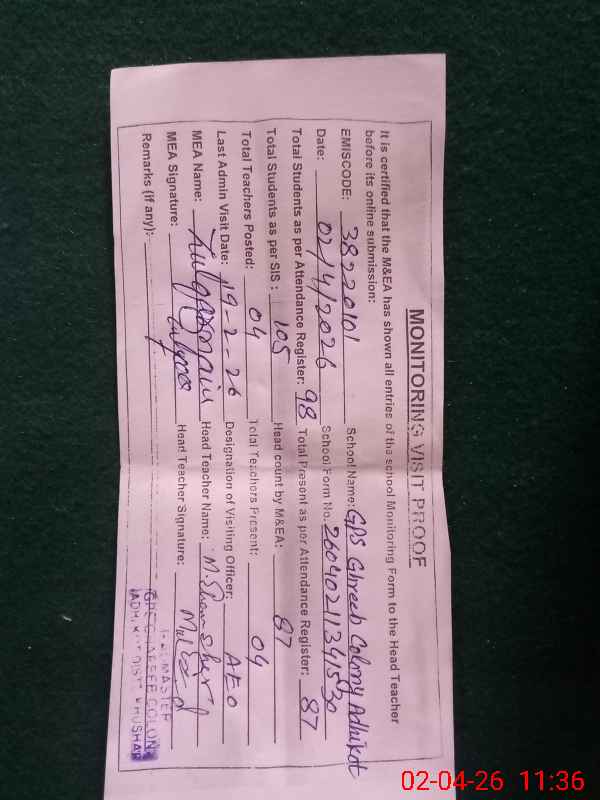 MONITORING VISIT PROOF
It is certified that the M&EA has shown all entries of the school Monitoring Form to the Head Teacher
before its online submission:
EMISCODE: 38220101 School Name: GPS Ghreeb Colony Adhikot
Date: 02/4/2026 School Form No. 26040211341530
Total Students as per Attendance Register: 98 Total Present as per Attendance Register: 87
Total Students as per SIS: 105 Head count by M&EA: 87
Total Teachers Posted: 04 Total Teachers Present: 04
Last Admin Visit Date: 19-2-26 Designation of Visiting Officer: AEO
MEA Name: Zulqarnain Head Teacher Name: M. Shamsher
MEA Signature: Head Teacher Signature:
Remarks (if any):
HEADMASTER
02-04-26 11:36